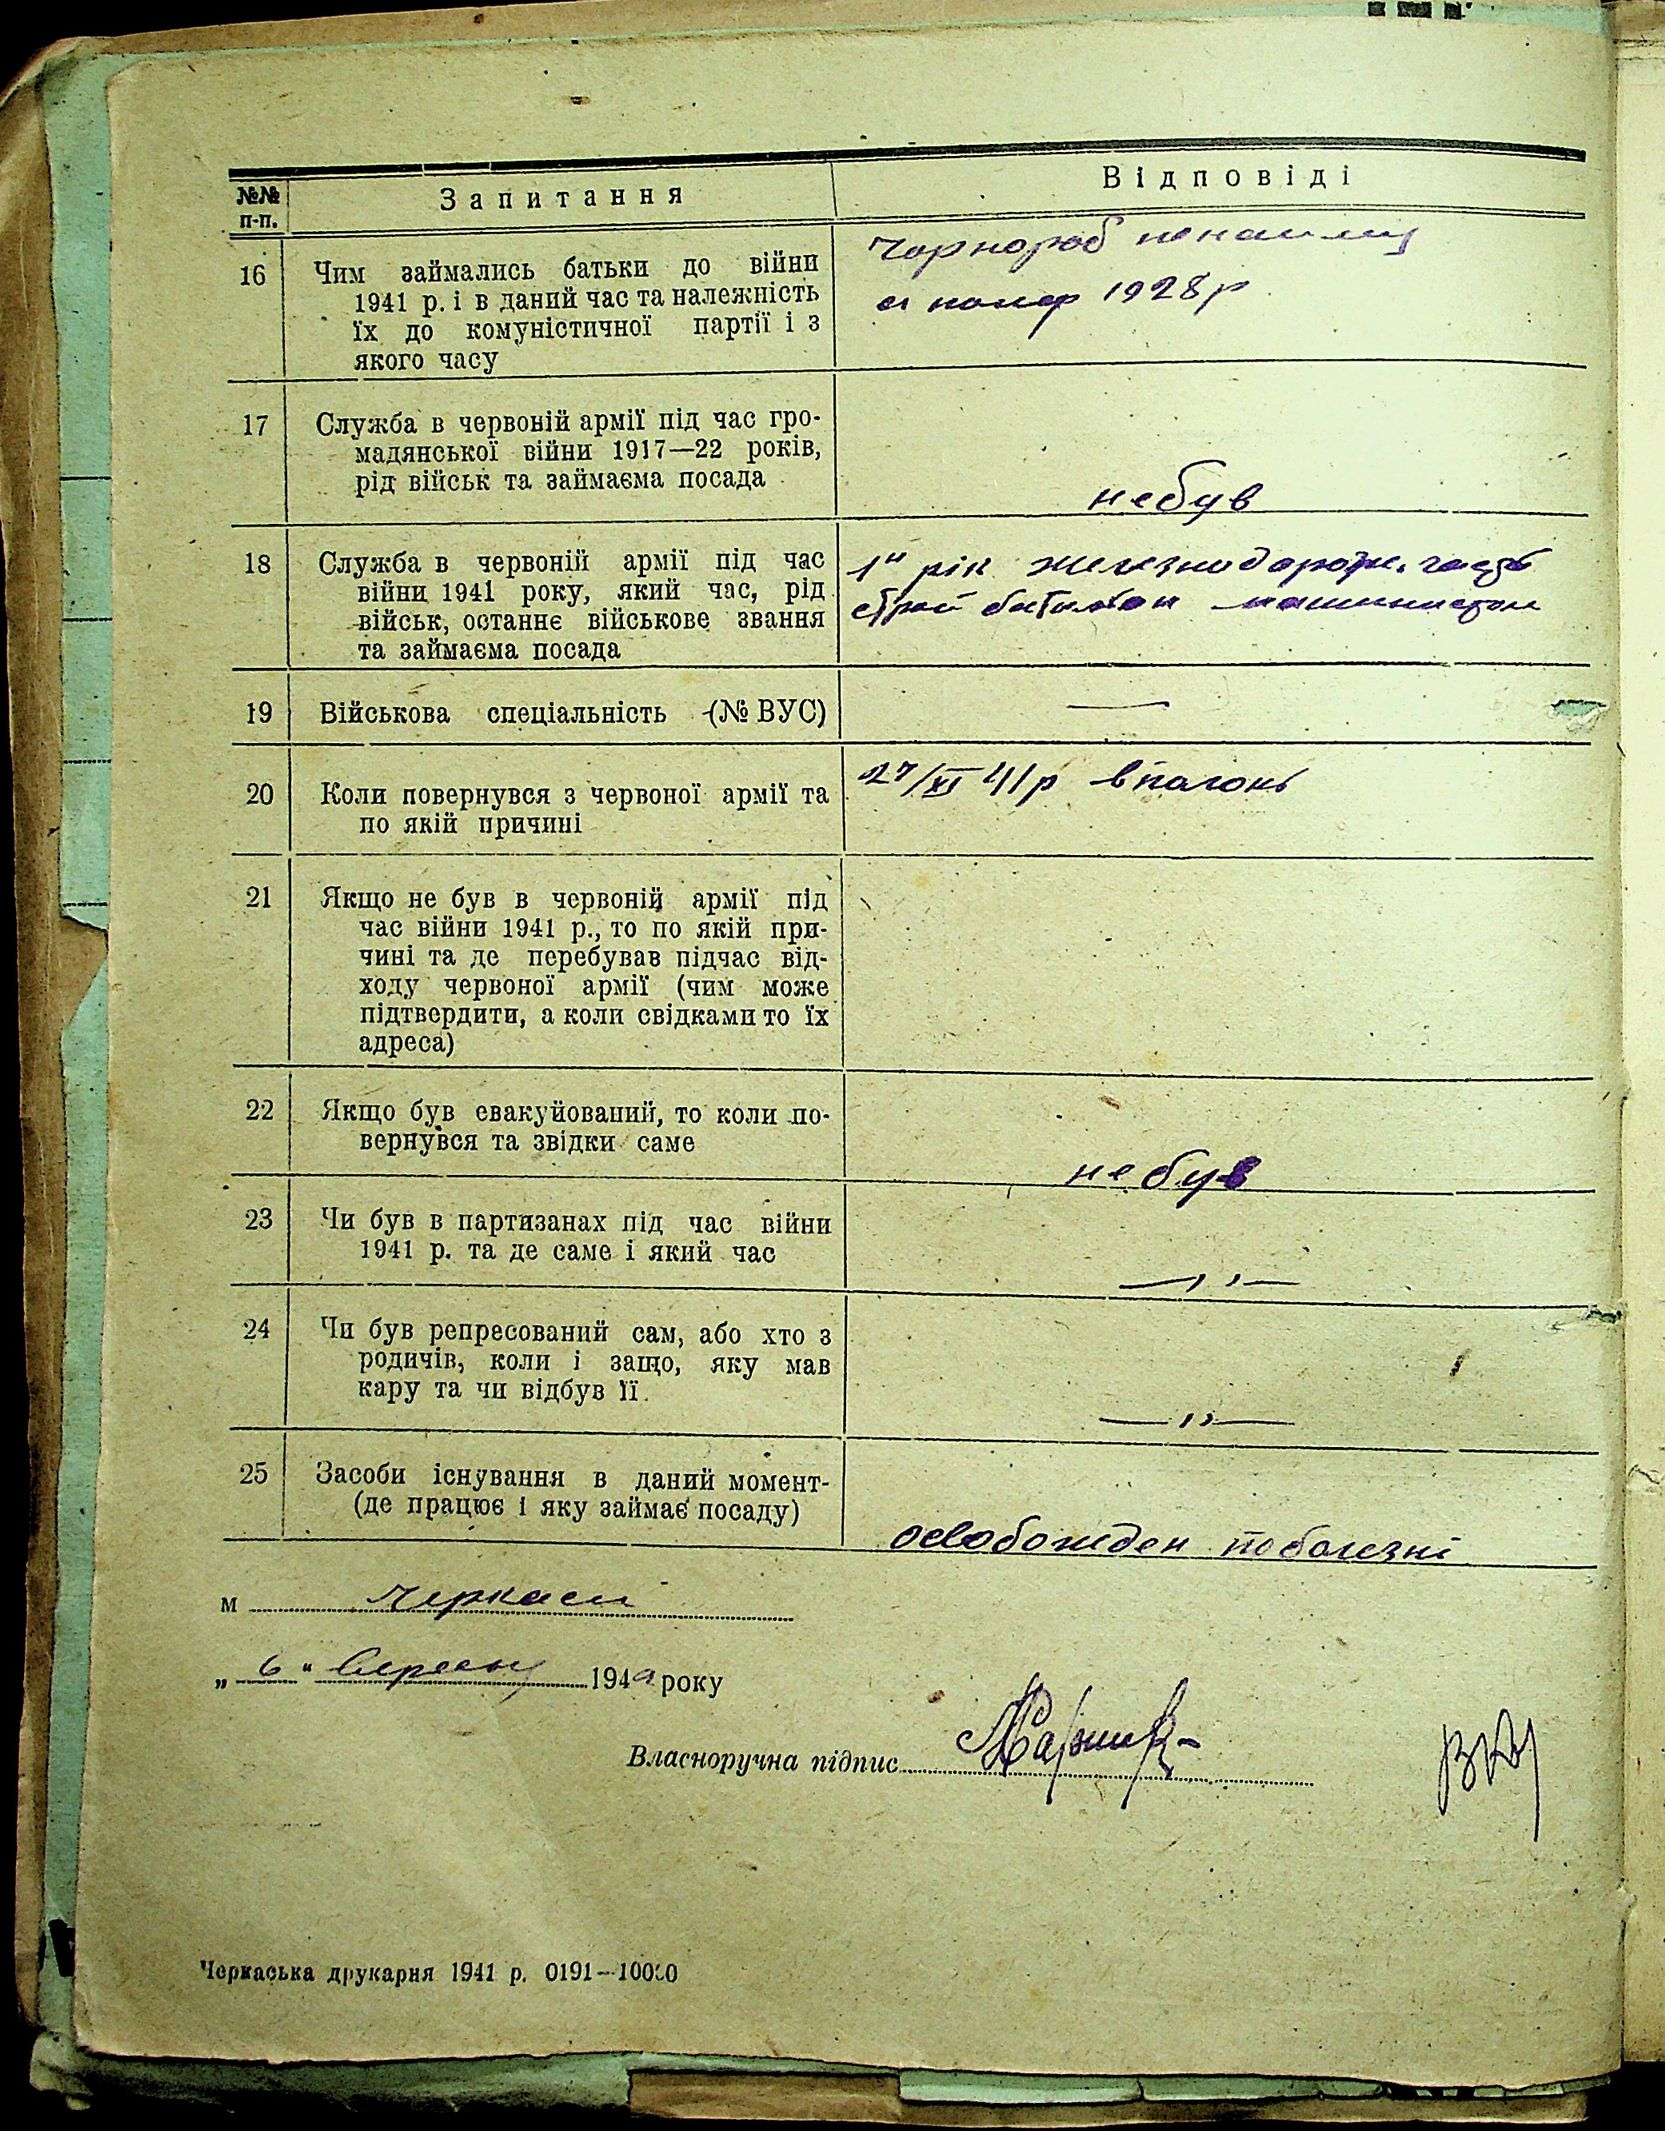 №№ п-п.
Запитання
Відповіді
16
Чим займались батьки до війни
1941 р. і в даний час та належність
їх до комуністичної партії і з
якого часу
Чорнороб
помер 1928 р
17
Служба в червоній армії під час гро-
мадянської війни 1917—22 років,
рід військ та займаєма посада
небув
18
Служба в червоній армії під час
війни 1941 року, який час, рід
військ, останнє військове звання
та займаєма посада
рік железнодорож. часть
строй батальон машинистом
19
Військова спеціальність (№ ВУС)
—
20
Коли повернувся з червоної армії та
по якій причині
27/XI 41 р
21
Якщо не був в червоній армії під
час війни 1941 р., то по якій при-
чині та де перебував підчас від-
ходу червоної армії (чим може
підтвердити, а коли свідками то їх
адреса)
22
Якщо був евакуйований, то коли по-
вернувся та звідки саме
не був
23
Чи був в партизанах під час війни
1941 р. та де саме і який час
—"—
24
Чи був репресований сам, або хто з
родичів, коли і защо, яку мав
кару та чи відбув її
—"—
25
Засоби існування в даний момент-
(де працює і яку займає посаду)
освобожден по болезні
м Черкаси
„ 6 " Вересня 194 року
Власноручна підпис
Черкаська друкарня 1941 р. 0191—10000